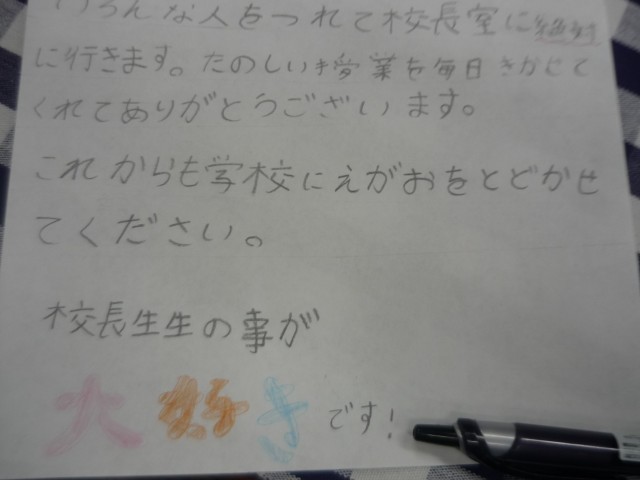 いろんな人をつれて校長室に絶対
に行きます。たのしい授業を毎日きかして
くれてありがとうございます。
これからも学校にえがおをとどかせ
てください。
校長生生の事が
大好きです!